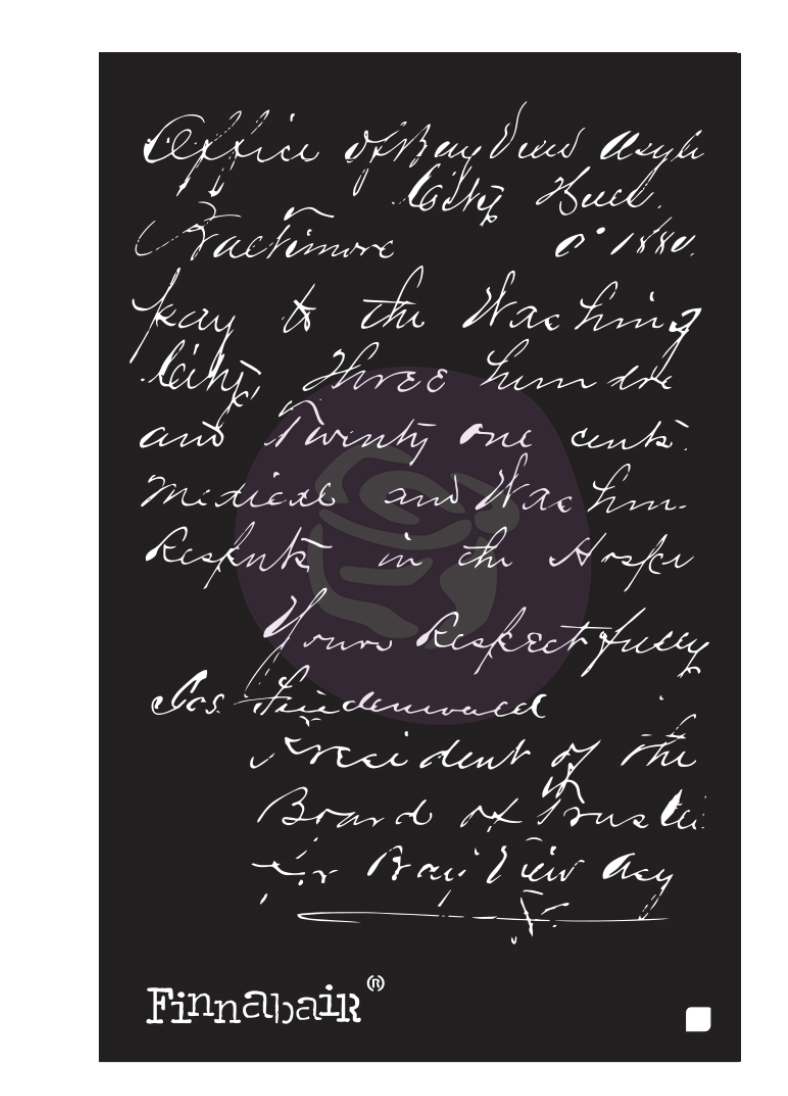 Office of Bay View Asyl
City Hall.
Baltimore 1880.
pay to the Washing
City, Three hundre
and Twenty one cents.
Medical and Washin
in the Hospi
Yours Respectfully
Jos Friedenwald
President of the
Board of Trustee
for Bay View Asy
Finnabair®